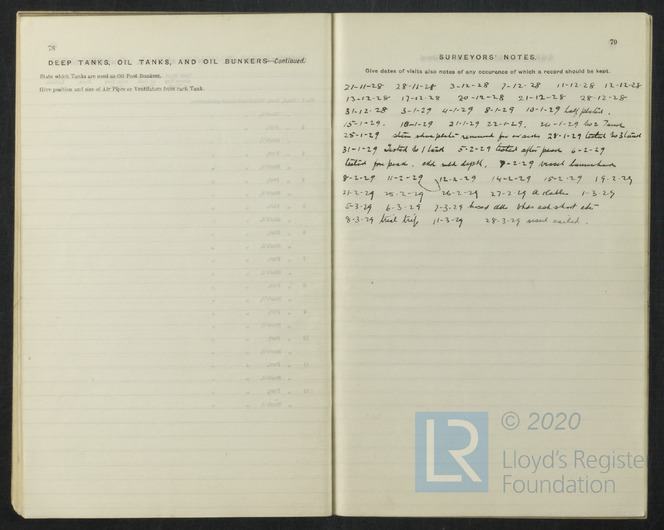 78
DEEP TANKS, OIL TANKS, AND OIL BUNKERS—Continued.
State which Tanks are used as Oil Fuel Bunkers.
Give position and size of Air Pipes or Ventilators from each Tank.
79
SURVEYORS' NOTES.
Give dates of visits also notes of any occurence of which a record should be kept.
21-11-28 28-11-28 3-12-28 7-12-28 11-12-28 12-12-28
13-12-28 17-12-28 20-12-28 21-12-28 28-12-28
31-12-28 3-1-29 4-1-29 8-1-29 10-1-29 keel plates.
15-1-29. 18-1-29 21-1-29 22-1-29. 24-1-29 No 2 Tank
25-1-29 removed for 28-1-29 tested No 3
31-1-29 Tested No 1 5-2-29 tested after peak 6-2-29
tested fore peak. depth. 7-2-29 vessel launched
8-2-29 11-2-29 12-2-29 14-2-29 15-2-29 19-2-29
21-2-29 25-2-29 26-2-29 27-2-29 1-3-29
5-3-29 6-3-29 7-3-29
8-3-29 trial trip 11-3-29 28-3-29 vessel sailed.
LR © 2020
Lloyd's Register
Foundation